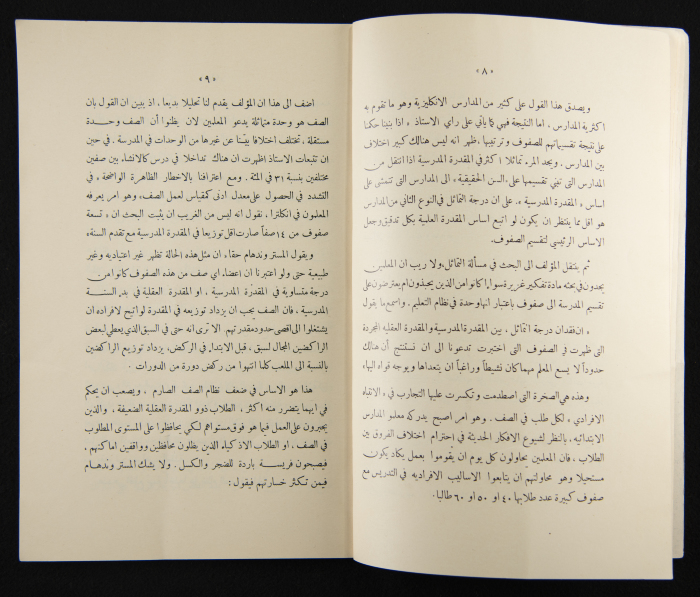 «٨»
ويصدق هذا القول على كثير من المدارس الانكليزية وهو ما تقوم به
اكثرية المدارس. اما النتيجة فهي كما يأتي على رأي الاستاذ « اذا بنينا حكمنا
على نتيجة تقسيماتهم للصفوف وترتيبها، ظهر انه ليس هنالك كبير اختلاف
بين المدارس. ويجد المرء تماثلا اكثر في المقدرة المدرسية اذا انتقل من
المدارس التي تبني تقسيمها على «السن الحقيقية» الى المدارس التي تتمشى على
اساس « المقدرة المدرسية ». على ان درجة التماثل في النوع الثاني من المدارس
هو اقل مما ينتظر ان يكون لو اتبع اساس المقدرة العلمية بكل تدقيق وجعل
الاساس الرئيسي لتقسيم الصفوف.
ثم ينتقل المؤلف الى البحث في مسألة التماثل، ولا ريب ان المعلمين
يجدون في بحثه مادة تفكير غزيرة سواء اكانوا من الذين يحبذون ام يعترضون على
تقسيم المدرسة الى صفوف باعتبار انها وحدة في نظام التعليم. واسمع ما يقول
« ان فقدان درجة التماثل، بين المقدرة المدرسية والمقدرة العقلية المجردة
التي ظهرت في الصفوف التي اختبرت تدعونا الى ان نستنتج أن هنالك
حدوداً لا يسع المعلم مهما كان نشيطاً وراغباً ان يتعداها ويوجه قواه اليها»
وهذه هي الصخرة التي اصطدمت وتكسرت عليها التجارب في « الانتباه
الافرادي » لكل طلب في الصف. وهو امر اصبح يدركه معلمو المدارس
الابتدائية. بالنظر لشيوع الافكار الحديثة في احترام اختلاف الفروق بين
الطلاب، فان المعلمين يحاولون كل يوم ان يقوموا بعمل يكاد يكون
مستحيلا وهو محاولتهم ان يتابعوا الاساليب الافرادية في التدريس مع
صفوف كبيرة عدد طلابها ٤٠ او ٥٠ او ٦٠ طالبا.
«٩»
اضف الى هذا ان المؤلف يقدم لنا تحليلا بديعا. اذ يبين ان القول بان
الصف هو وحدة متماثلة يدعو المعلمين لان يظنوا أن الصف وحدة
مستقلة، تختلف اختلافا بيّنا عن غيرها من الوحدات في المدرسة. في حين
ان تتبعات الاستاذ اظهرت ان هناك تداخلا في درس كالانشاء بين صفين
مختلفين بنسبة ٣١ في المئة. ومع اعترافنا بالاخطار الظاهرة الواضحة، في
التشدد في الحصول على معدل ادنى كمقياس لعمل الصف، وهو امر يعرفه
المعلمون في انكلترا، نقول انه ليس من الغريب ان يثبت البحث ان « تسعة
صفوف من ١٤ صفاً صارت اقل توزيعا في المقدرة المدرسية مع تقدم السنة»
ويقول المستر وندهام حقا، ان مثل هذه الحالة تظهر غير اعتيادية وغير
طبيعية حتى ولو اعتبرنا ان اعضاء اي صف من هذه الصفوف كانوا من
درجة متساوية في المقدرة المدرسية، او المقدرة العقلية في بدء السنة
المدرسية، فان الصف يجب ان يزداد توزيعه في المقدرة لو اتيح لافراده ان
يشتغلوا الى اقصى حدود مقدرتهم. الا ترى انه حتى في السبق الذي يعطي لبعض
الراكضين المجال لسبق، قبل الابتداء في الركض، يزداد توزيع الراكضين
بالنسبة الى الملعب كلما انتهوا من ركض دورة من الدورات.
هذا هو الاساس في ضعف نظام الصف الصارم. ويصعب ان يحكم
في ايهما يتضرر منه اكثر، الطلاب ذوو المقدرة العقلية الضعيفة، والذين
يجبرون على العمل فيما هو فوق مستواهم لكي يحافظوا على المستوى المطلوب
في الصف، او الطلاب الاذكياء الذين يظلون محافظين وواقفين اماكنهم،
فيصبحون فريسة باردة للضجر والكسل. ولا يشك المستر وندهام
فيمن تكثر خسارتهم فيقول: